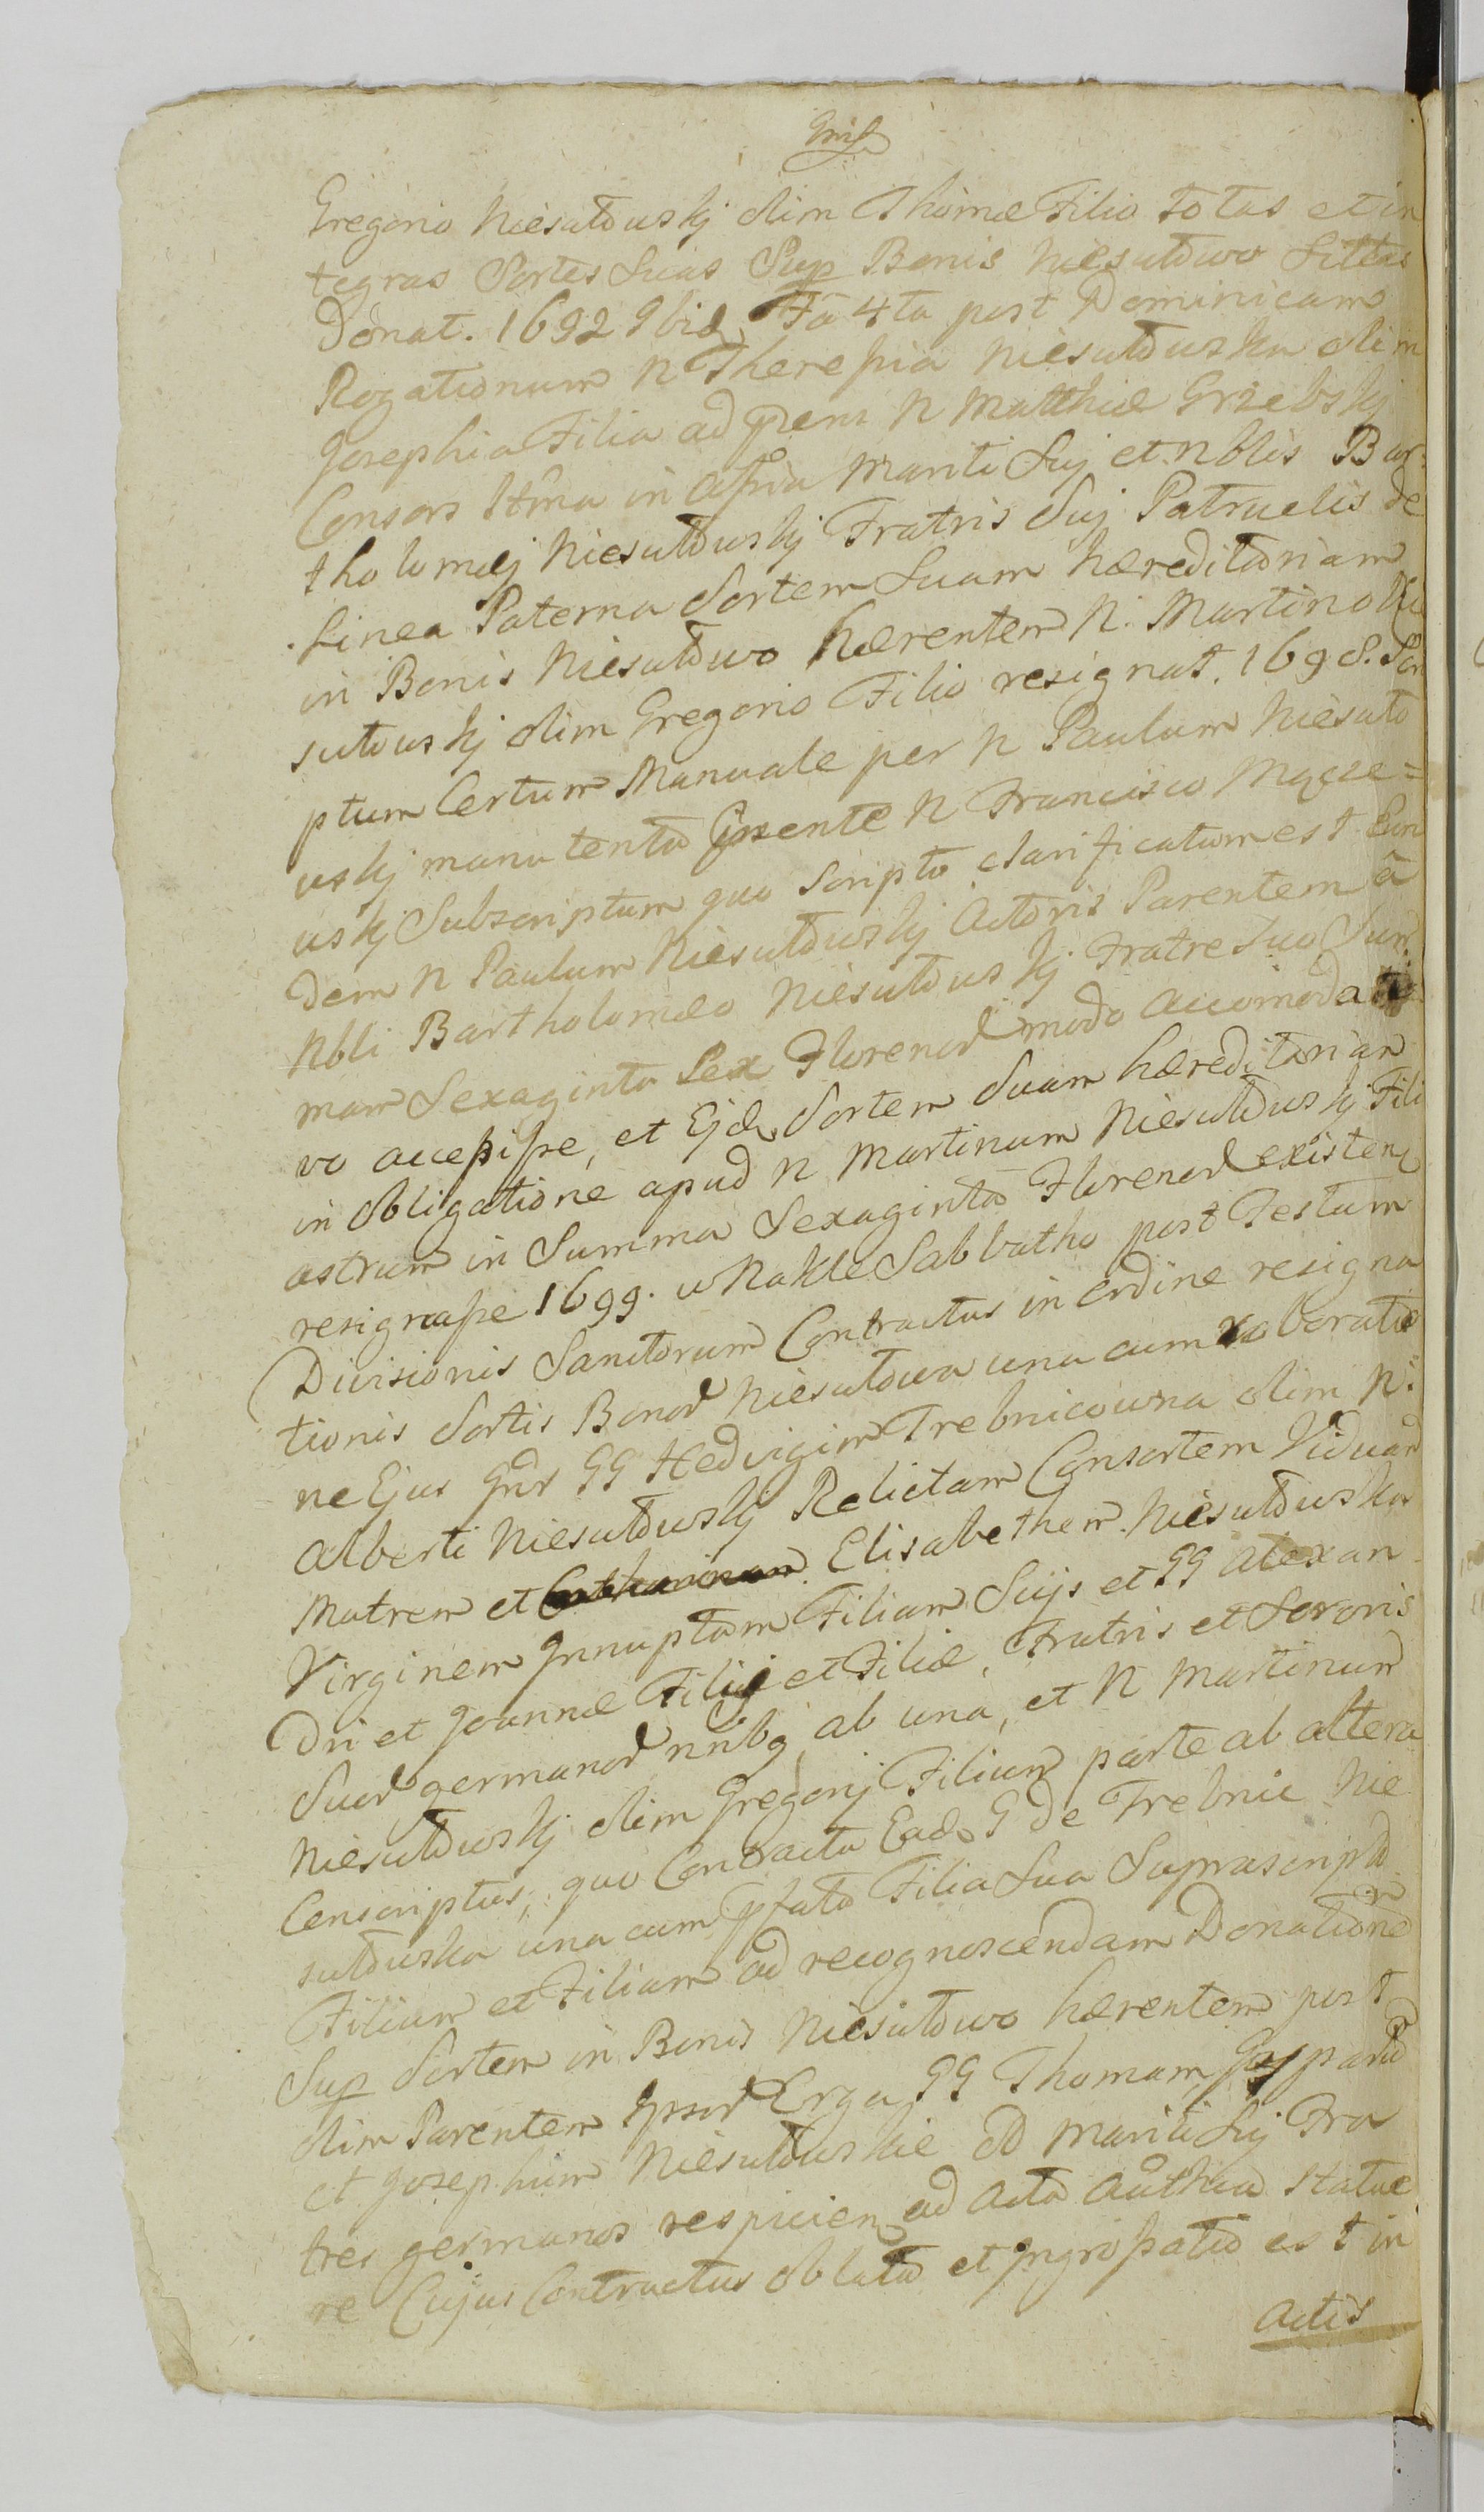 Gregorio Niesułowskj olim Thomæ Filio totas et in
tegras Sortes Suas Sup Bonis Niesułowo Sittas
Donat. 1692 Ibid. Fâ 4ta post Dominicam
Rogationum N Theressia Niesułowska olim
Josephi Filia ad præns N Matthiæ Grzebskj
Consors Ltîma in Assîa Mariti Suj et Nblis Bar:
tholomæj Niesułowskj Fratris Suj Patruelis de
Linea Paterna Sortem Suam hæreditariam
in Bonis Niesułowo hærentem N. Martino Nie
sułowskj olim Gregorio Filio resignat. 1698. Scri
ptum Certum Manuale per N Paulum Niesuło
wskj manu tento præsente N Francisco Mącze=
wskj Subscriptum quo Scripto clarificatum est Eun
dem N Paulum Niesułowskj Actoris Parentem â
Nbli Bartholomæo Niesułowskj Fratre Suo Sum:
mam Sexaginta Sex Florenor modo accomodati
vo accepisse, et Ejd. Sortem Suam hæreditariam
in obligatione apud N Martinum Niesułowskj Fili
astrum in Summa Sexaginta Florenor existen
resignasse 1699. w Nakle Sabbatho post Festum
Divisionis Sanctorum Contractus in ordine resigna
tionis Sortis Bonor Niesułowa una cum roboratio
ne Ejus Int GG Hedvigim Trebnicowna olim N.
Alberti Niesułowskj Relictam Consortem Viduam
Matrem et Elisabetham Niesułowska
Virginem Innuptam Filiam Suys et GG Alexan
dri et Joannæ Filij et Filiæ, Fratris et Sororis
Suor germanor nnbg ab una, et N Martinum
Niesułowskj olim Gregorij Filium parte ab altera
Conscriptus, quo Contractu Ead. G de Trebnic Nie
sułowska una cum pfata Filia Sua Suprascriptos
Filium et Filiam ad recognoscendam Donationem
Sup Sortem in Bonis Niesułowo hærentem post
olim Parentem Ipsor Erga GG Thomam, Gasparum
et Josephum Niesułowskie olim Mariti Suj Fra
tres germanos respicien ad Acta Authca Statue
re Cujus Contractus oblata et Ingrossatio est in
Actis